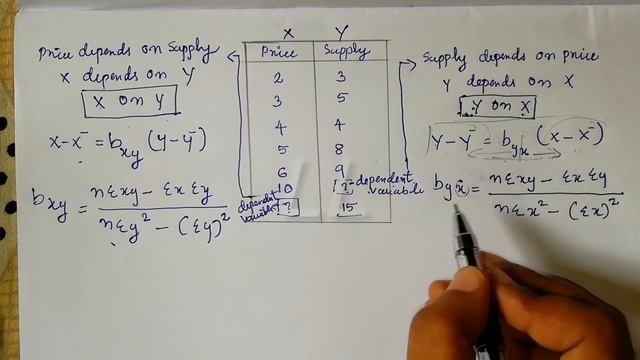 Price depends on Supply
X depends on Y
X on Y
x-x̄ = bxy (y-ȳ)
bxy = nΣxy - Σx Σy / nΣy² - (Σy)²
X Y
Price Supply
2 3
3 5
4 4
5 8
6 9
10 ? dependent variable
dependent variable ? 15
Supply depends on price
Y depends on X
Y on X
Y-Ȳ = byx (x-x̄)
byx = nΣxy - Σx Σy / nΣx² - (Σx)²